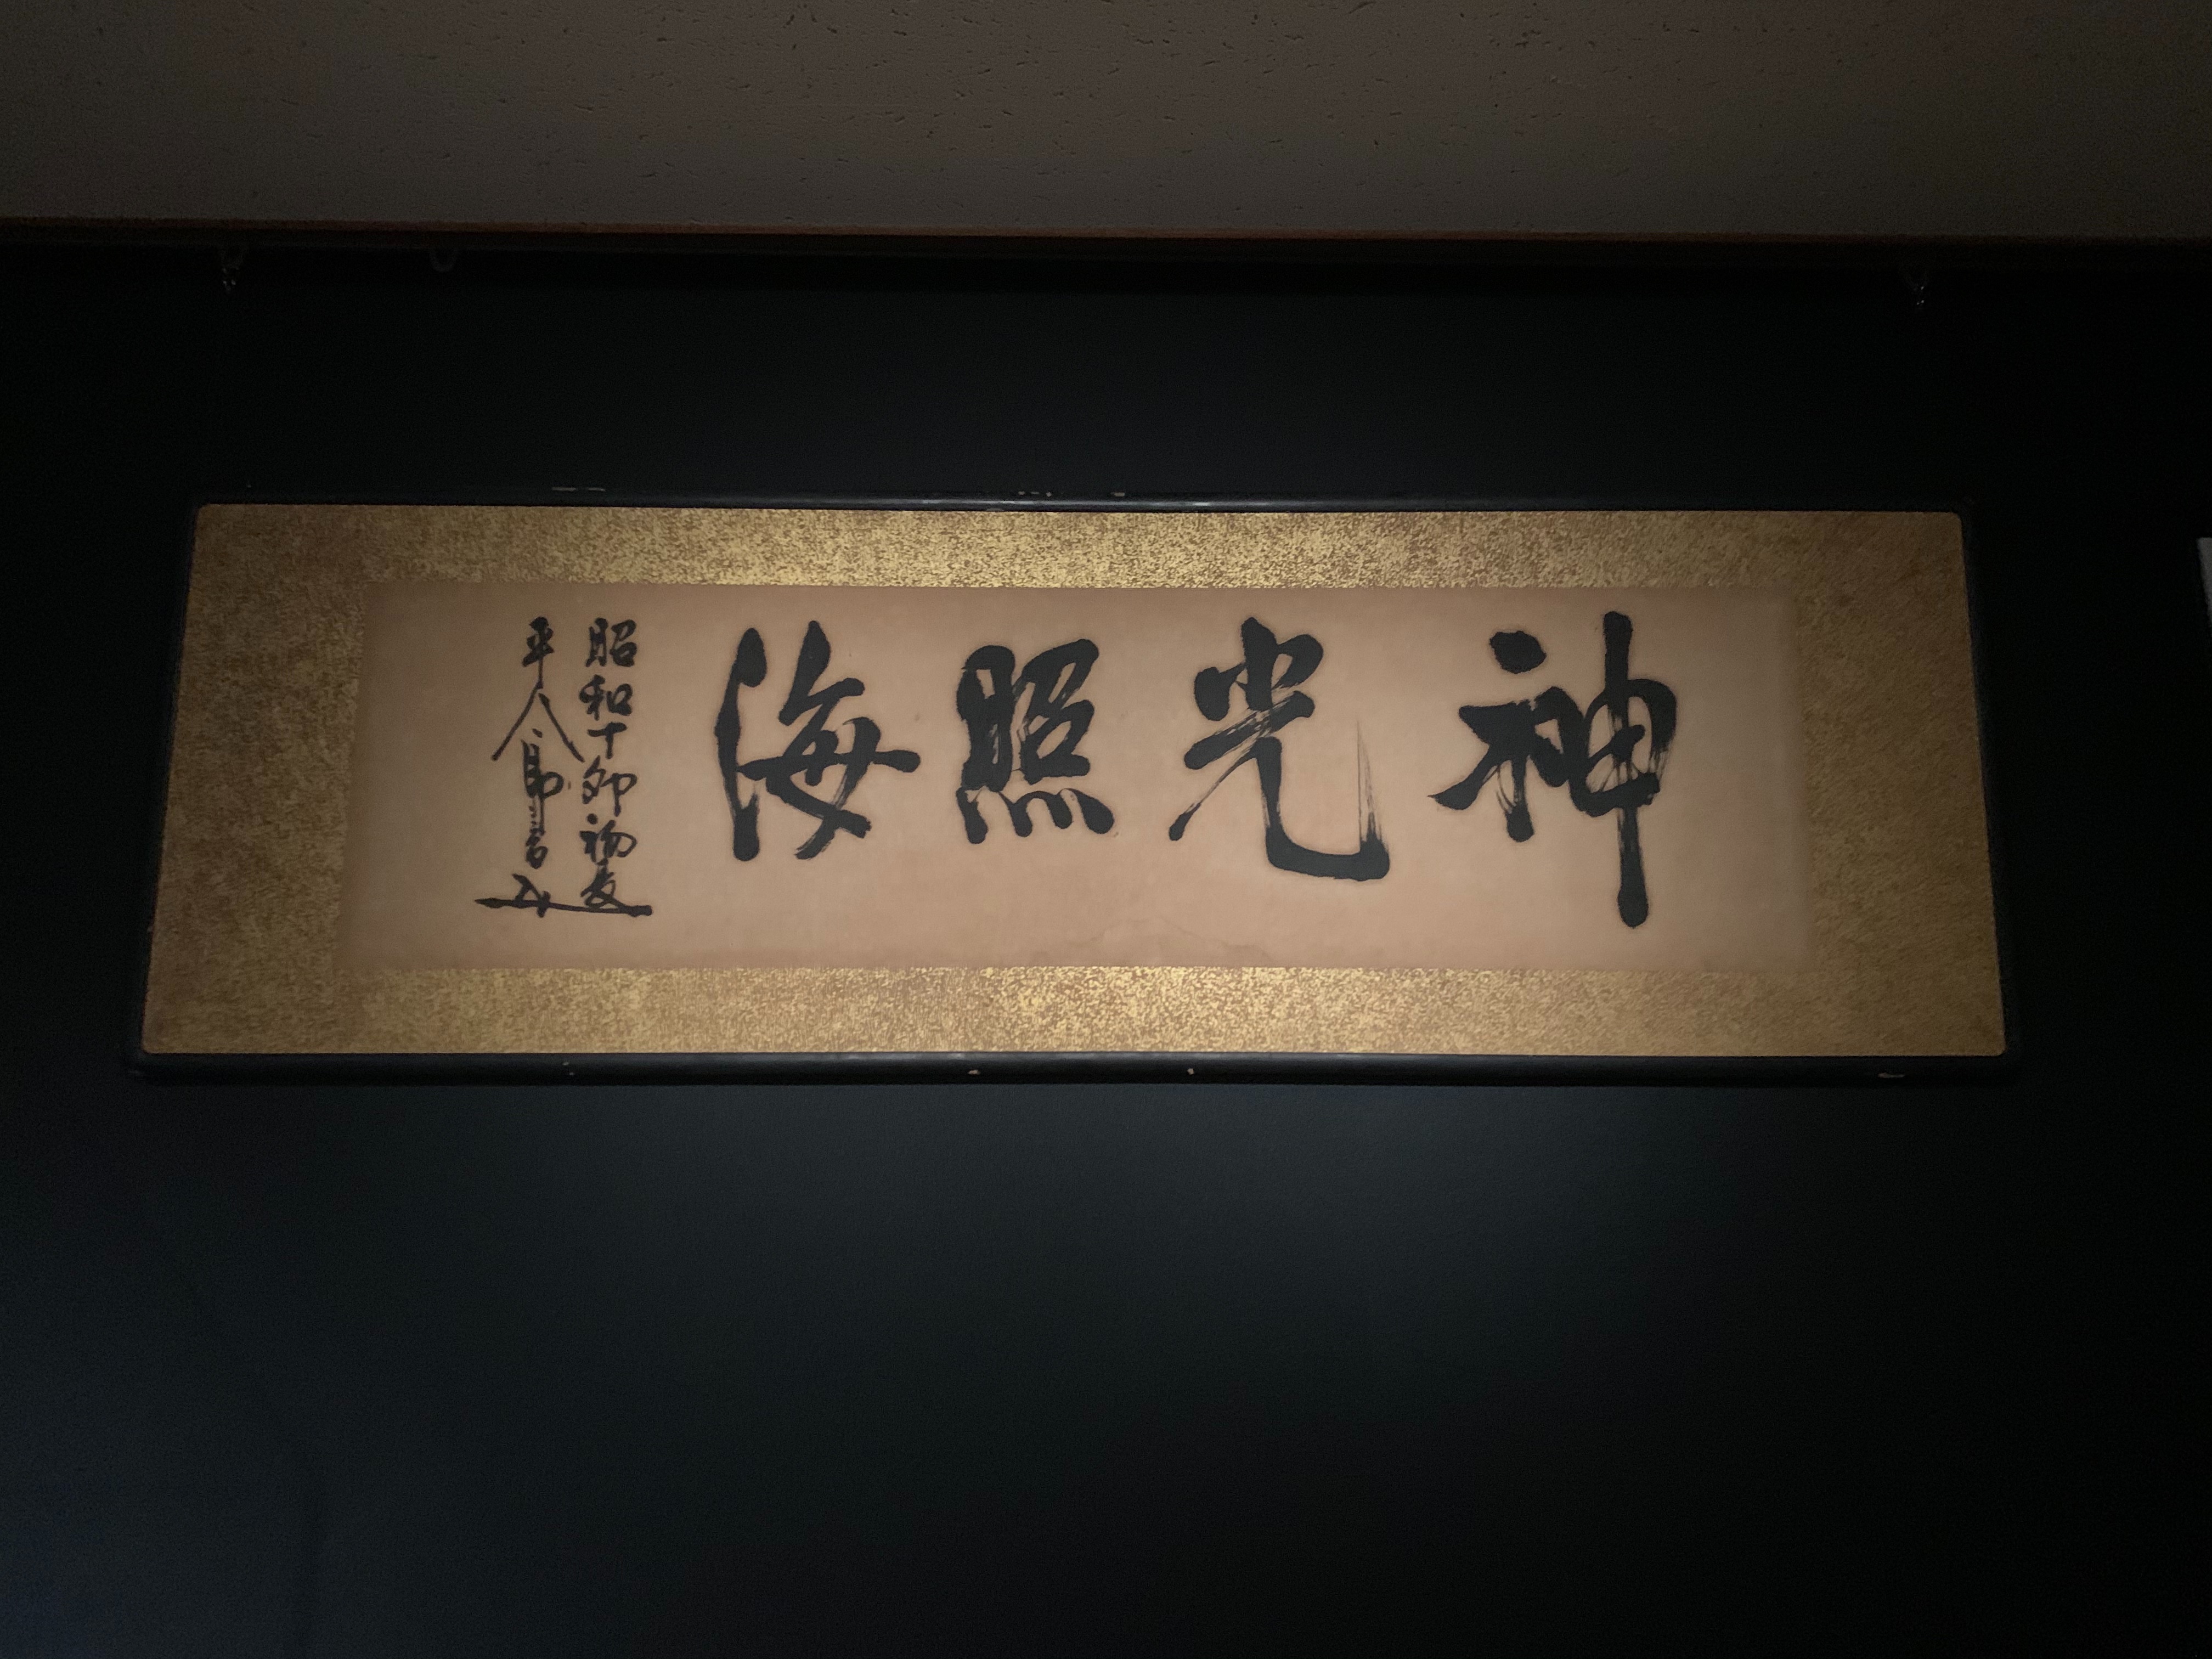 神光照海
昭和丁卯初夏
平八郎書